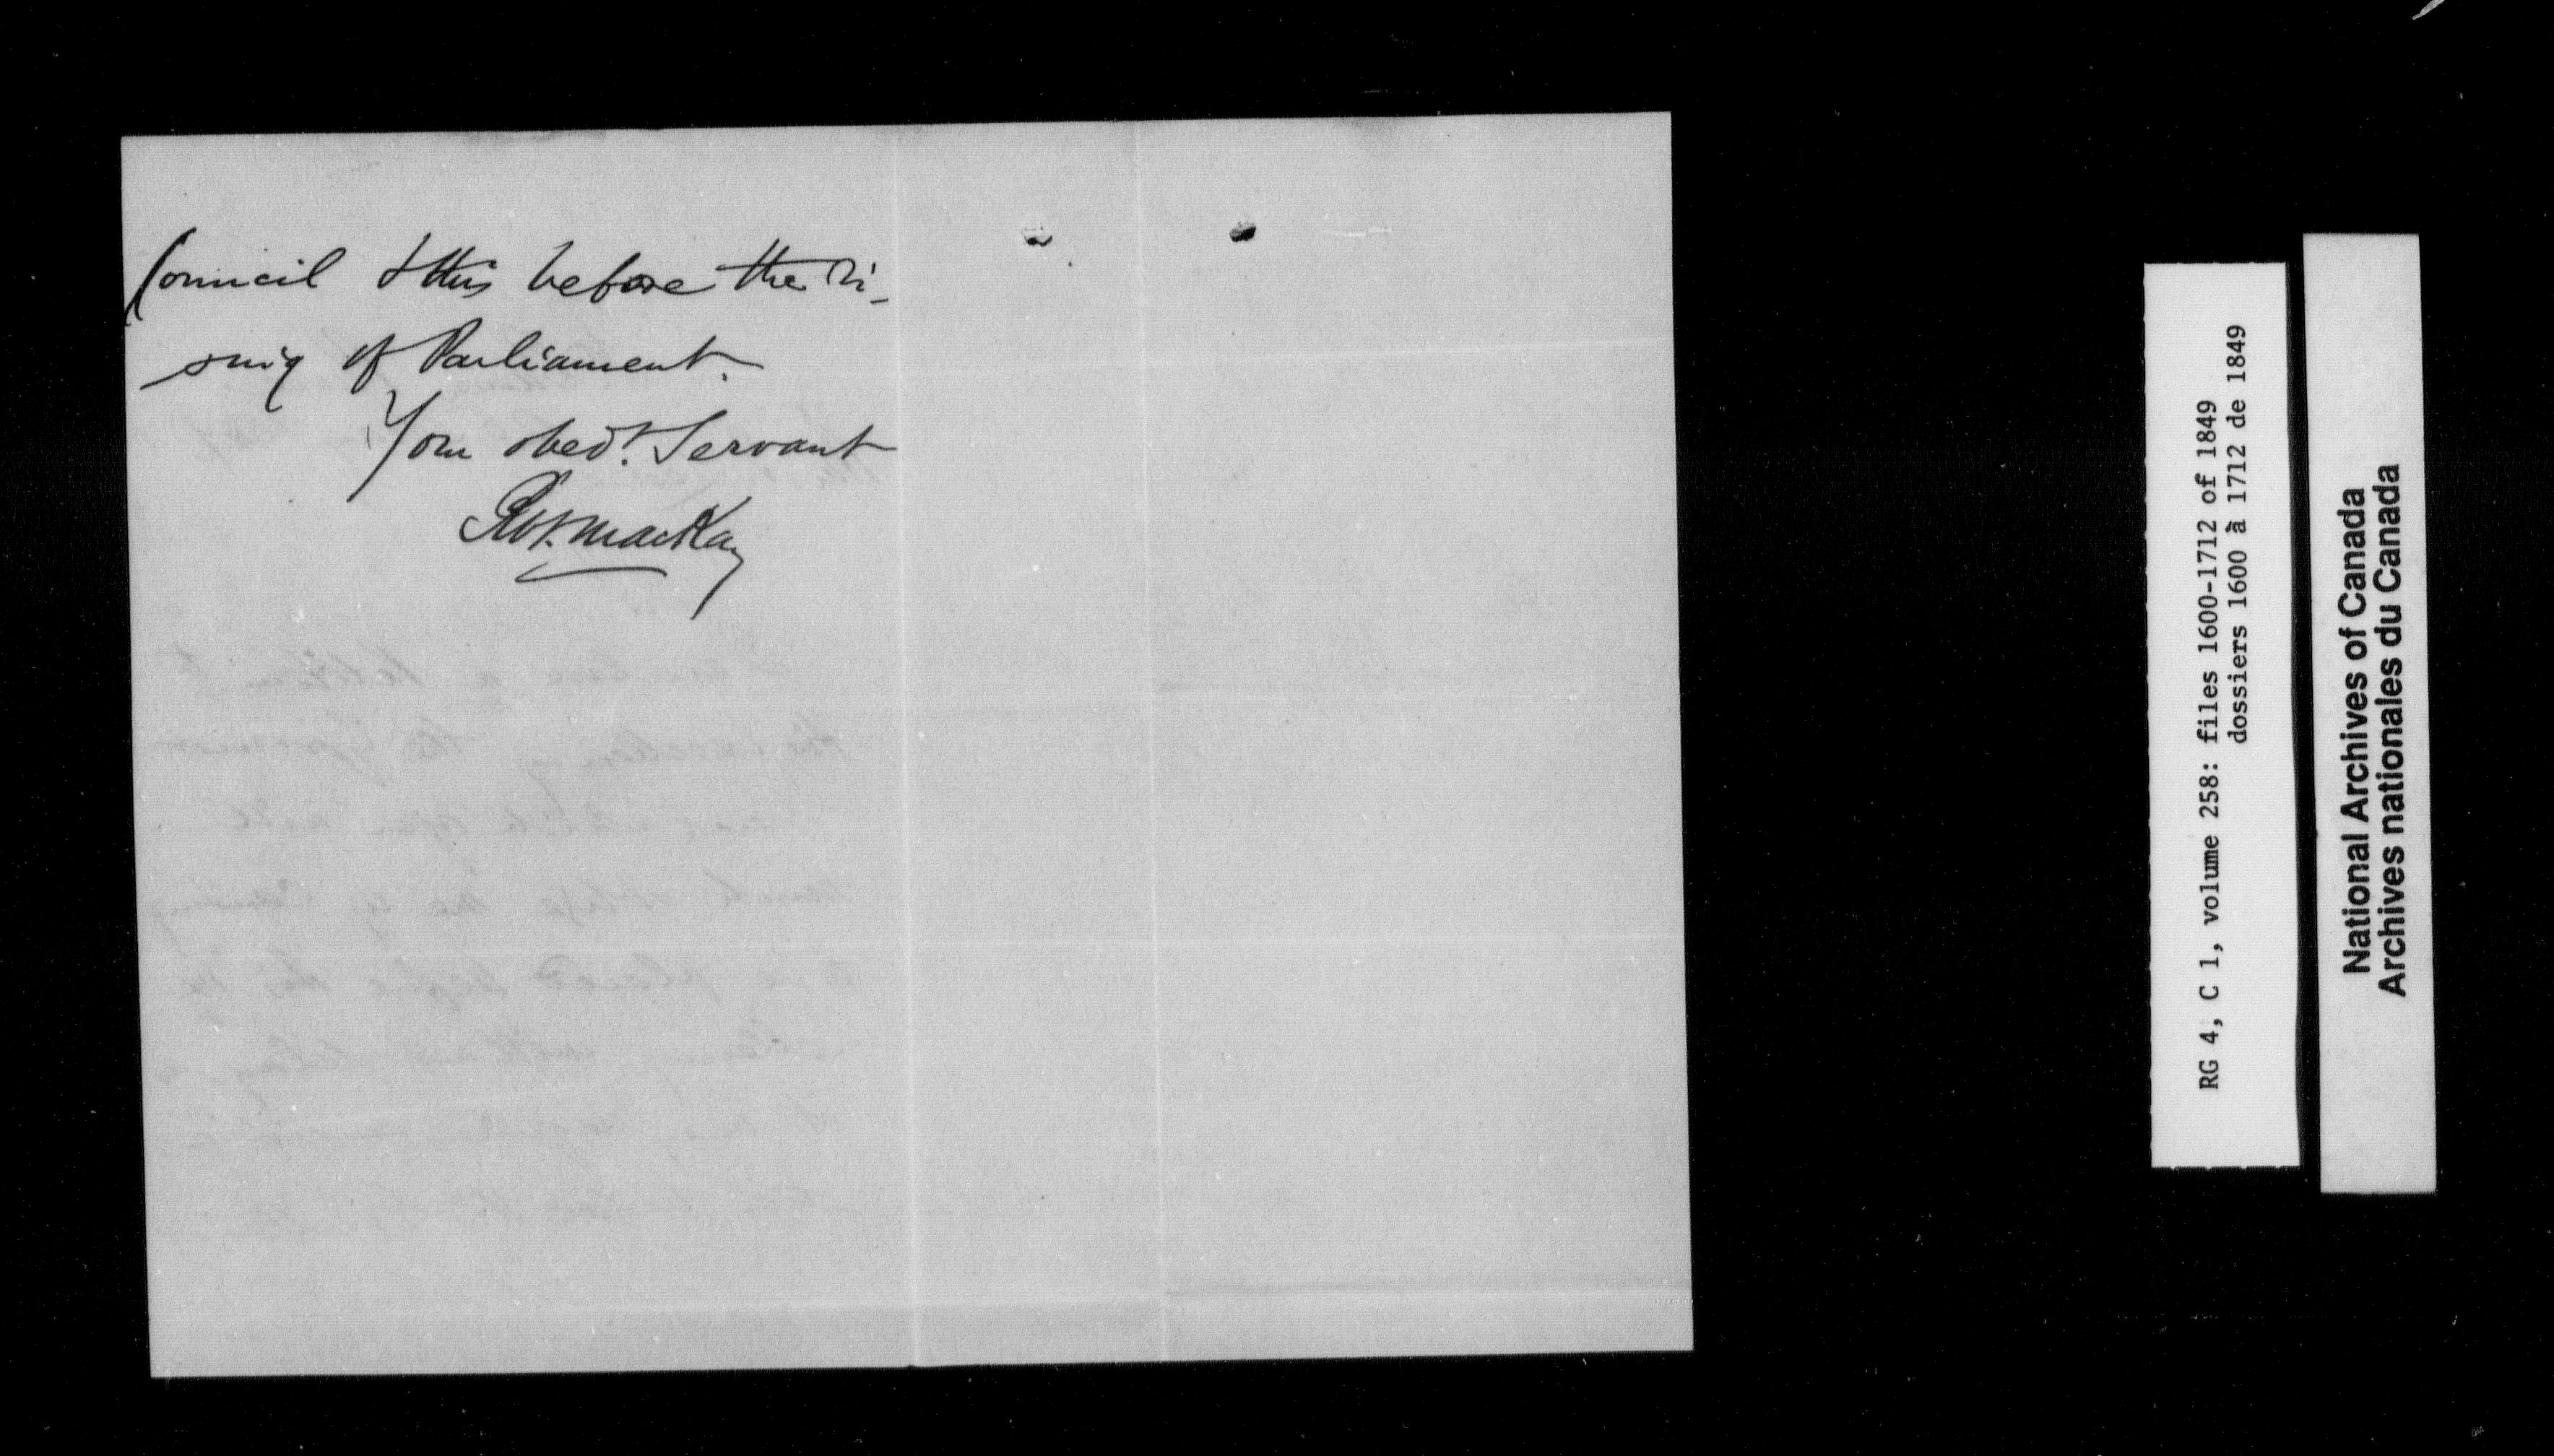 Council & this before the ri-
sing of Parliament.
Your obedt. Servant
Robt. MacKay
RG 4, C 1, volume 258: files 1600-1712 of 1849
dossiers 1600 à 1712 de 1849
National Archives of Canada
Archives nationales du Canada